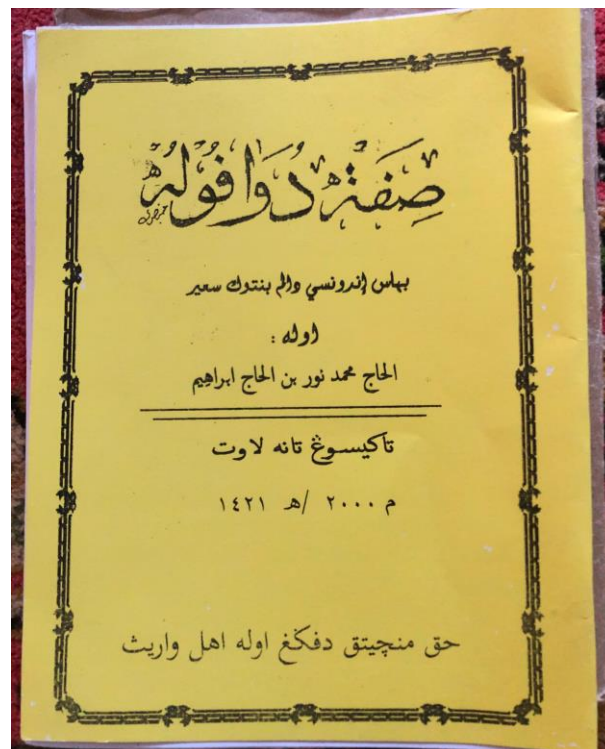 صفة دوا فوله
بهاس إندونسي دالم بنتوك سعير
اوله :
الحاج محمد نور بن الحاج ابراهيم
تاكيسوڠ تانه لاوت
م ٢٠٠٠ /ه ١٤٢١
حق منچيتق دفݢڠ اوله اهل واريث